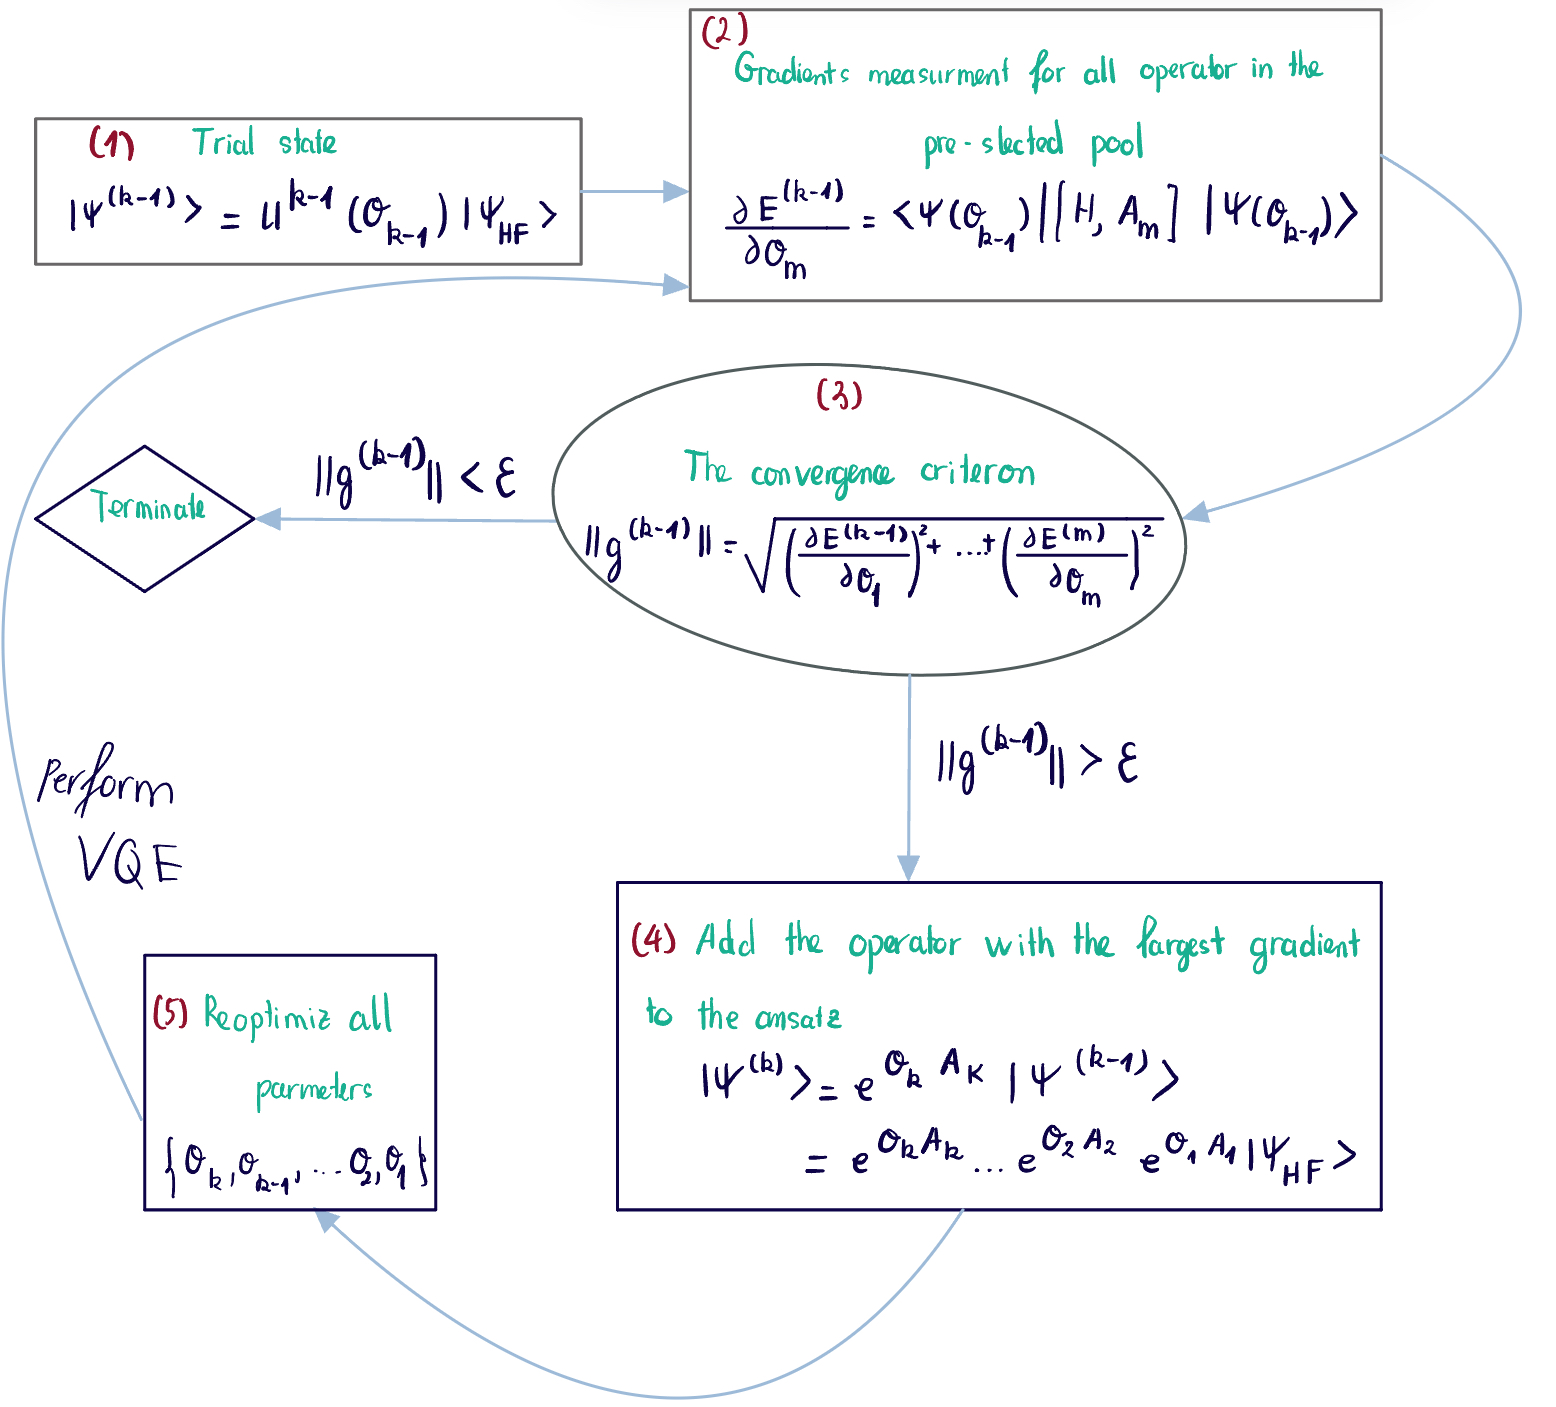 (1) Trial state
|Ψ^(k-1)> = U^k-1 (θ_k-1) |Ψ_HF>
(2)
Gradients measurment for all operator in the
pre-slected pool
∂E^(k-1)/∂θ_m = <Ψ(θ_k-1)|[H, A_m] |Ψ(θ_k-1)>
(3)
The convergence criteron
||g^(k-1)|| = √((∂E^(k-1)/∂θ_1)^2 + ...+ (∂E^(m)/∂θ_m)^2)
||g^(k-1)|| < ε
Terminate
||g^(k-1)|| > ε
(4) Add the operator with the largest gradient
to the ansatz
|Ψ^(k)> = e^θ_k A_K |Ψ^(k-1)>
= e^θ_k A_k ... e^θ_2 A_2 e^θ_1 A_1 |Ψ_HF>
(5) Reoptimiz all
parmeters
{θ_k, θ_k-1, ... θ_2, θ_1}
Perform
VQE